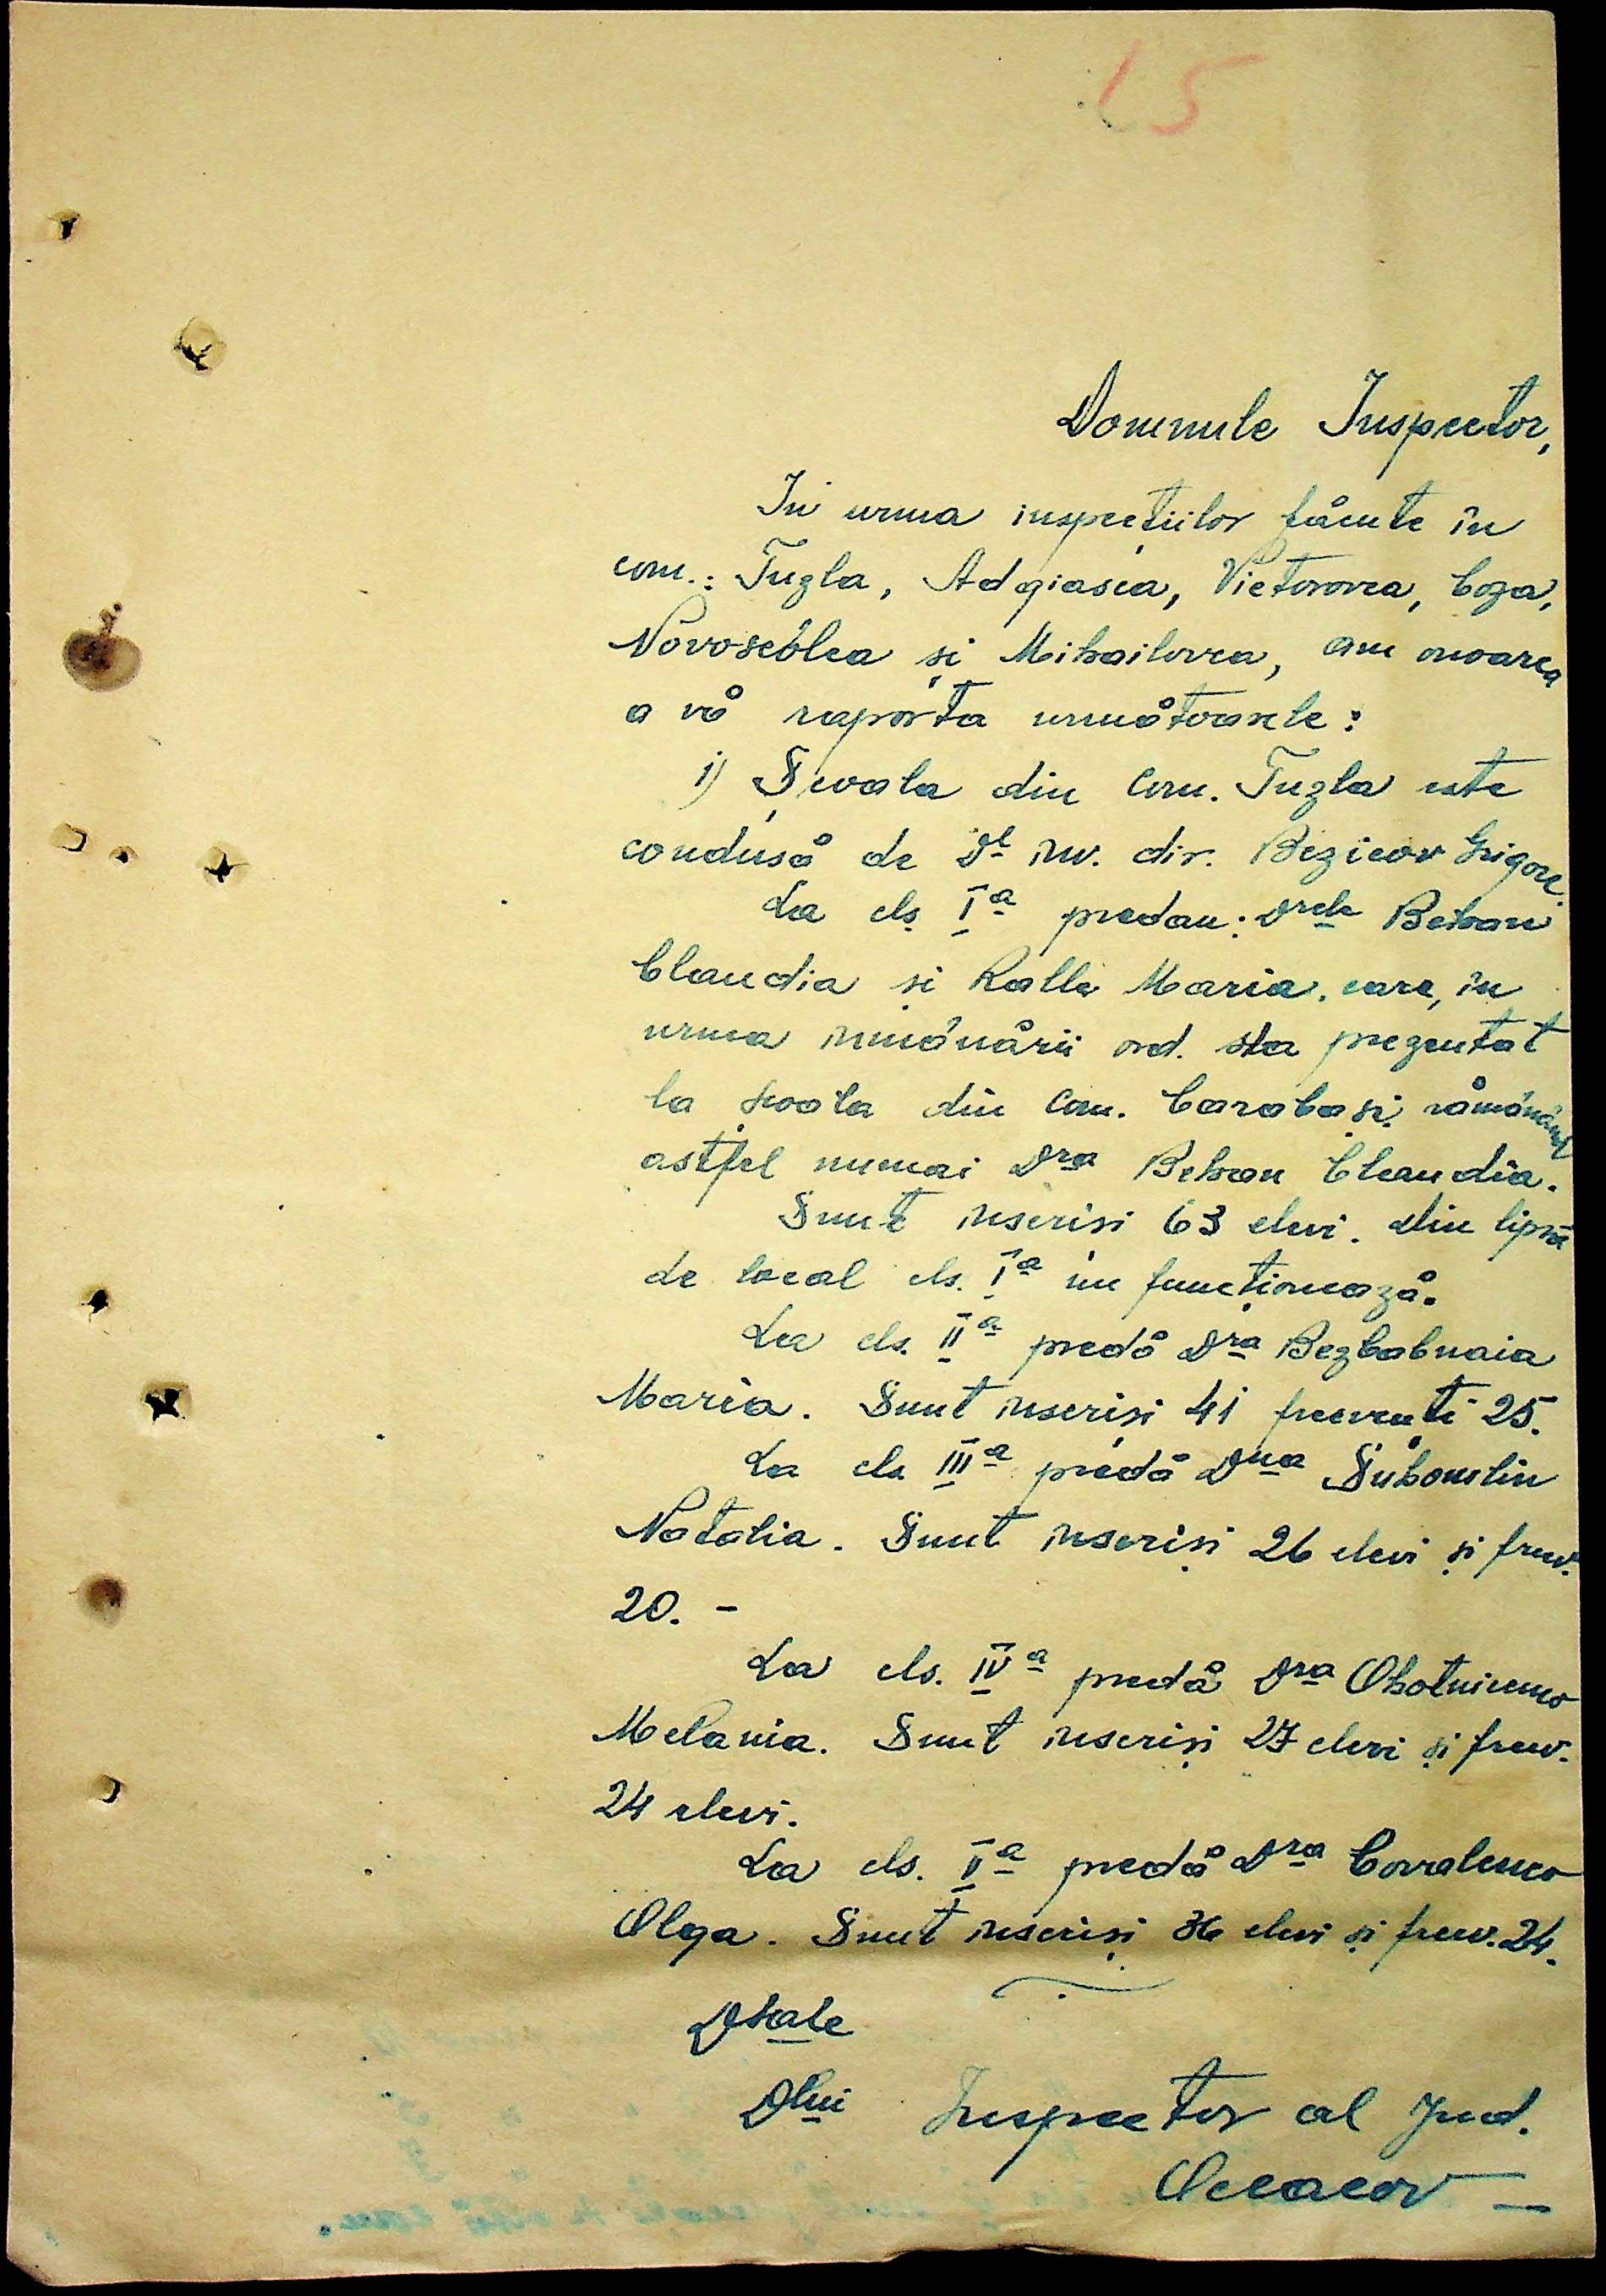 15
Domnule Inspector,
In urma inspecțiilor făcute în
com.: Tuzla, Adgiasca, Victorovca, Coza,
Novoseólca și Mihailovca, am onoarea
a vă raporta următoarele:
1) Școala din Com. Tuzla este
condusă de Dl înv. dir. Bezicov Grigore.
La cls. Ia predau: Drele Behan
Claudia și Ralli Maria, care, în
urma înmânării ord. s'a prezentat
la școala din Com. Carabași, rămânând
astfel numai Dra Behan Claudia.
Sunt inscrisi 63 elevi. Din lipsă
de local cls. Ia nu funcționează.
La cls. IIa predă Dra Bezbabnaia
Maria. Sunt inscriși 41 frecvenți 25.
La cls. IIIa predă Dna
Natalia. Sunt inscriși 26 elevi și frecv.
20. -
La cls. IVa predă Dra Ohotnicenco
Melania. Sunt inscriși 27 elevi și frecv.
24 elevi.
La cls. Va predă Dra Covalenco
Olga. Sunt inscriși 36 elevi și frecv. 24.
Dsale
Dlui Inspector al Jud.
Oceacov